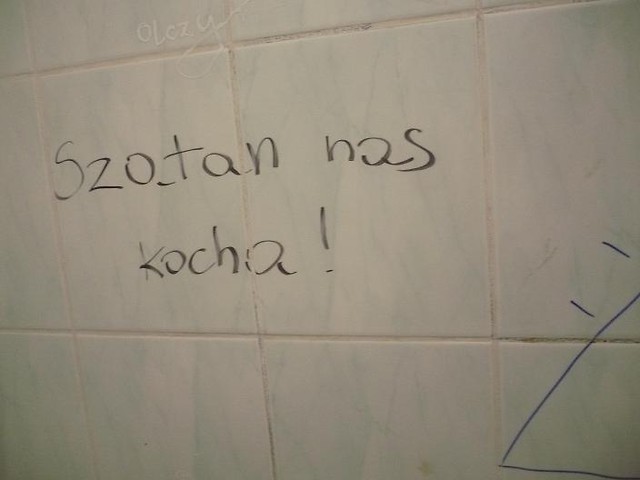 olczy
Szatan nas
kocha!